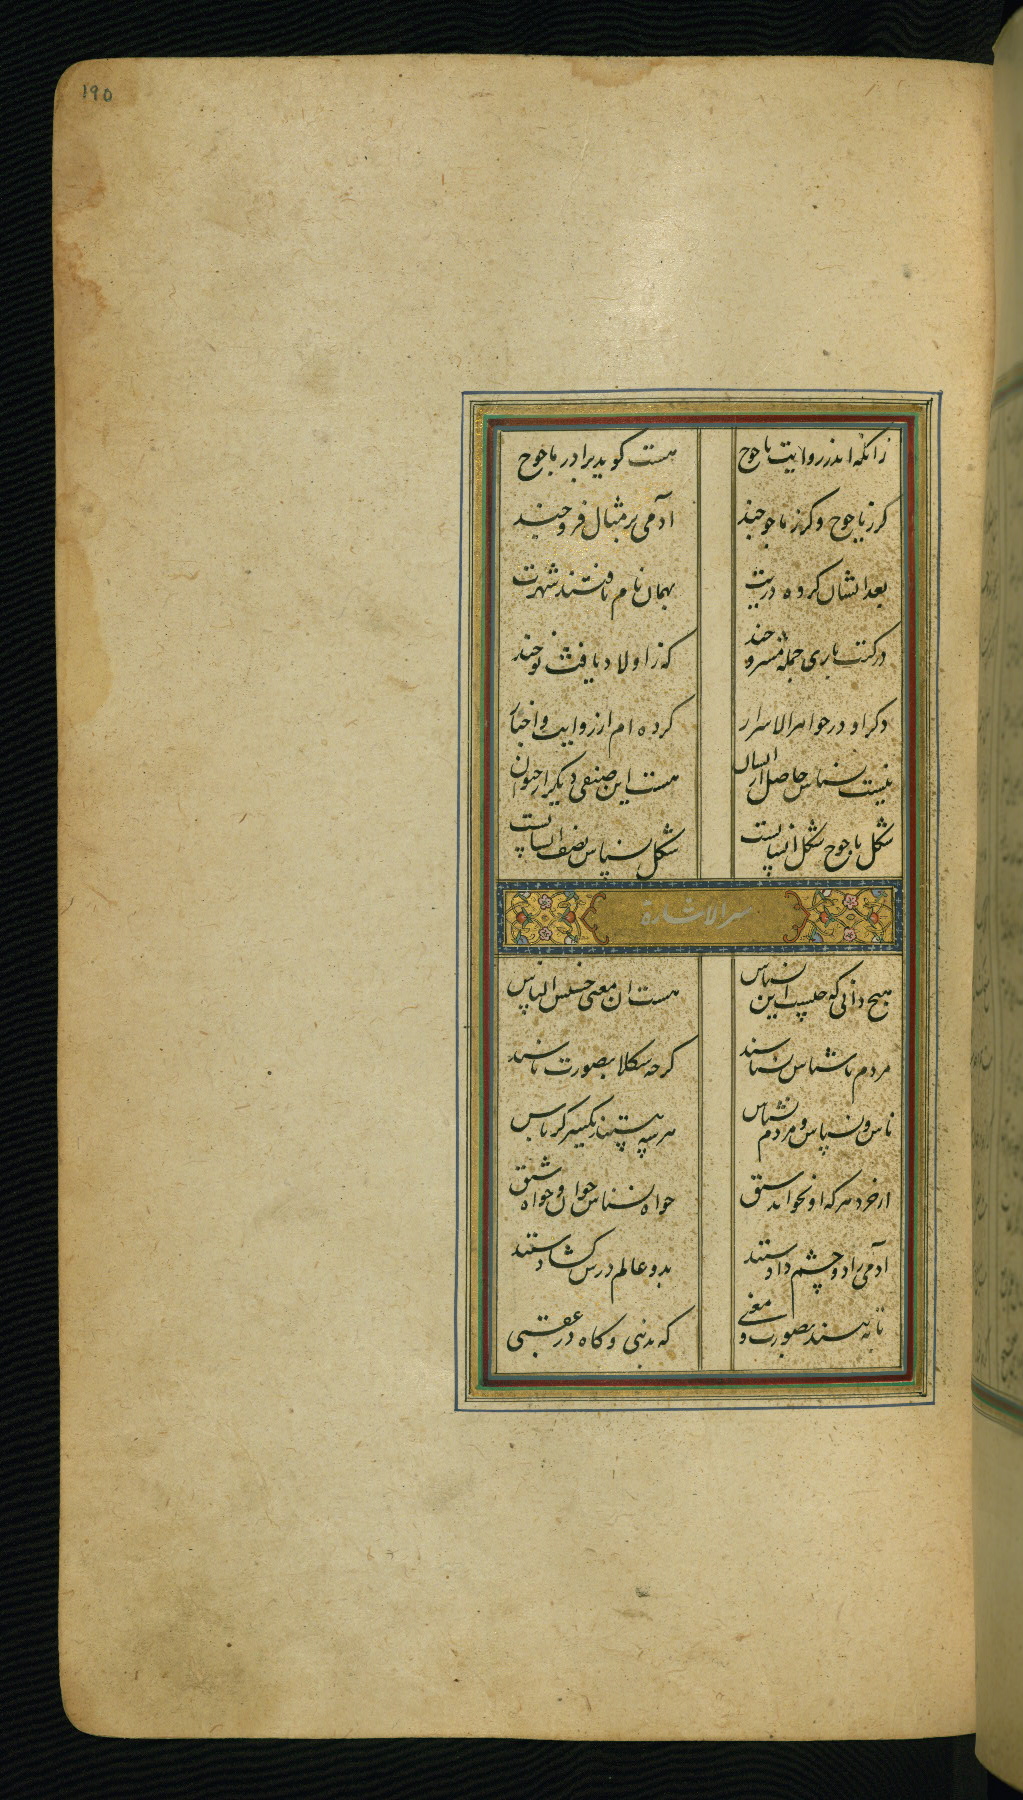 190
زانکه اندر روایت یاجوج هست کوید برادر ماجوج
کر ز یاجوج و کر ز ماجوجند آدمی بر مثال فروجند
بعد ایشان کروه ذریت بهمان نام یافتند شهرت
در کتب باری جمله که ز اولاد یافث نوحند
دکر او در جواهر الاسرار کرده ام از روایت و اخبار
نیست نسناس حاصل از انسان هست این صنفی دیکر از حیوان
شکل یاجوج شکل انسانیست شکل نسناس نصف انسانیست
سر الاشارة
هیچ دانی که چیست این نسناس هست ان معنی خسیس الناس
مردم ناشناس نسناسند کرچه شکلا بصورت ناسند
ناس و نسناس و مردم نشناس هر سه هستند یکسر کرباس
از خرد هر که او نخواند سبق خواه نسناس خوان و خواه
آدمی را دو چشم دادستند بدو عالم درش کشادستند
تا به بیند بصورت و معنی که بدنیی و کاه در عقبی